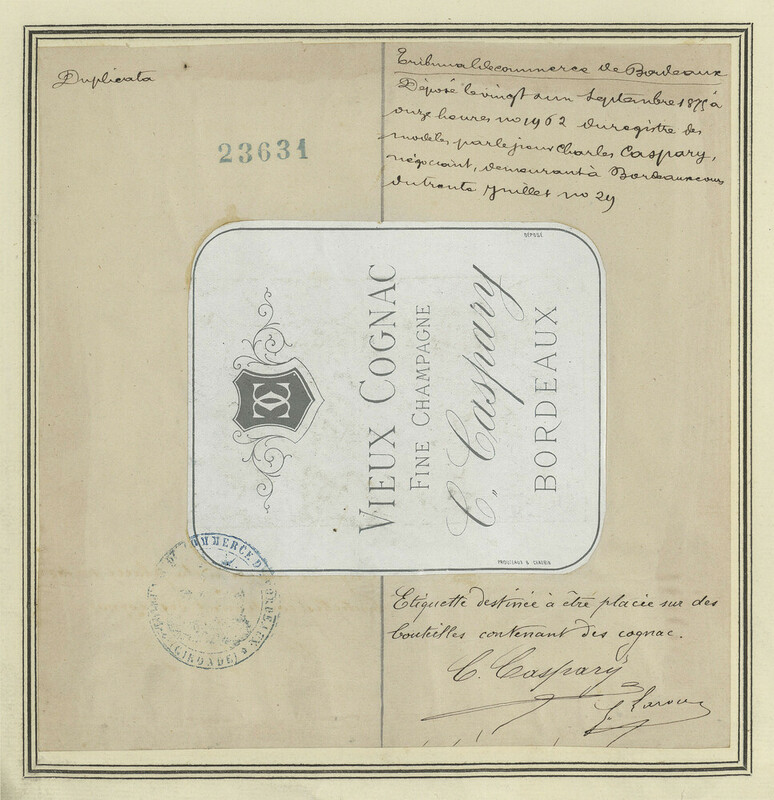 Duplicata
23631
Tribunal de commerce de Bordeaux
Déposé le vingt un Septembre 1875 à
onze heures no 1962 du registre des
modèles par le sieur Charles Caspary,
négociant, demeurant à Bordeaux cours
du trente Juillet no 29
DÉPOSÉ
CC
VIEUX COGNAC
FINE CHAMPAGNE
C. Caspary
BORDEAUX
COMMERCE DE BORDEAUX
(GIRONDE)
Etiquette destinée à être placée sur des
bouteilles contenant des cognac.
C. Caspary